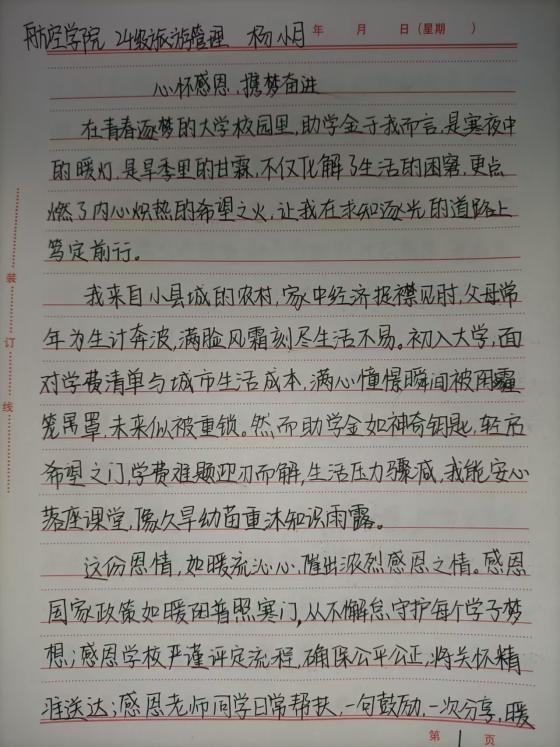 航空学院 24级旅游管理 杨小月 年 月 日(星期 )
心怀感恩,携梦奋进
在青春逐梦的大学校园里,助学金于我而言,是寒夜中
的暖灯,是旱季里的甘霖,不仅化解了生活的困窘,更点
燃了内心炽热的希望之火,让我在求知逐光的道路上
笃定前行。
我来自小县城的农村,家中经济捉襟见肘,父母常
年为生计奔波,满脸风霜刻尽生活不易。初入大学,面
对学费清单与城市生活成本,满心憧憬瞬间被阴霾
笼罩,未来似被重锁。然而助学金如神奇钥匙,轻启
希望之门,学费难题迎刃而解,生活压力骤减,我能安心
落座课堂,像久旱幼苗重沐知识雨露。
这份恩情,如暖流沁心,催出浓烈感恩之情。感恩
国家政策如暖阳普照寒门,从不懈怠守护每个学子梦
想;感恩学校严谨评定流程,确保公平公正,将关怀精
准送达;感恩老师同学日常帮扶,一句鼓励,一次分享,暖
装
订
线
第 1 页